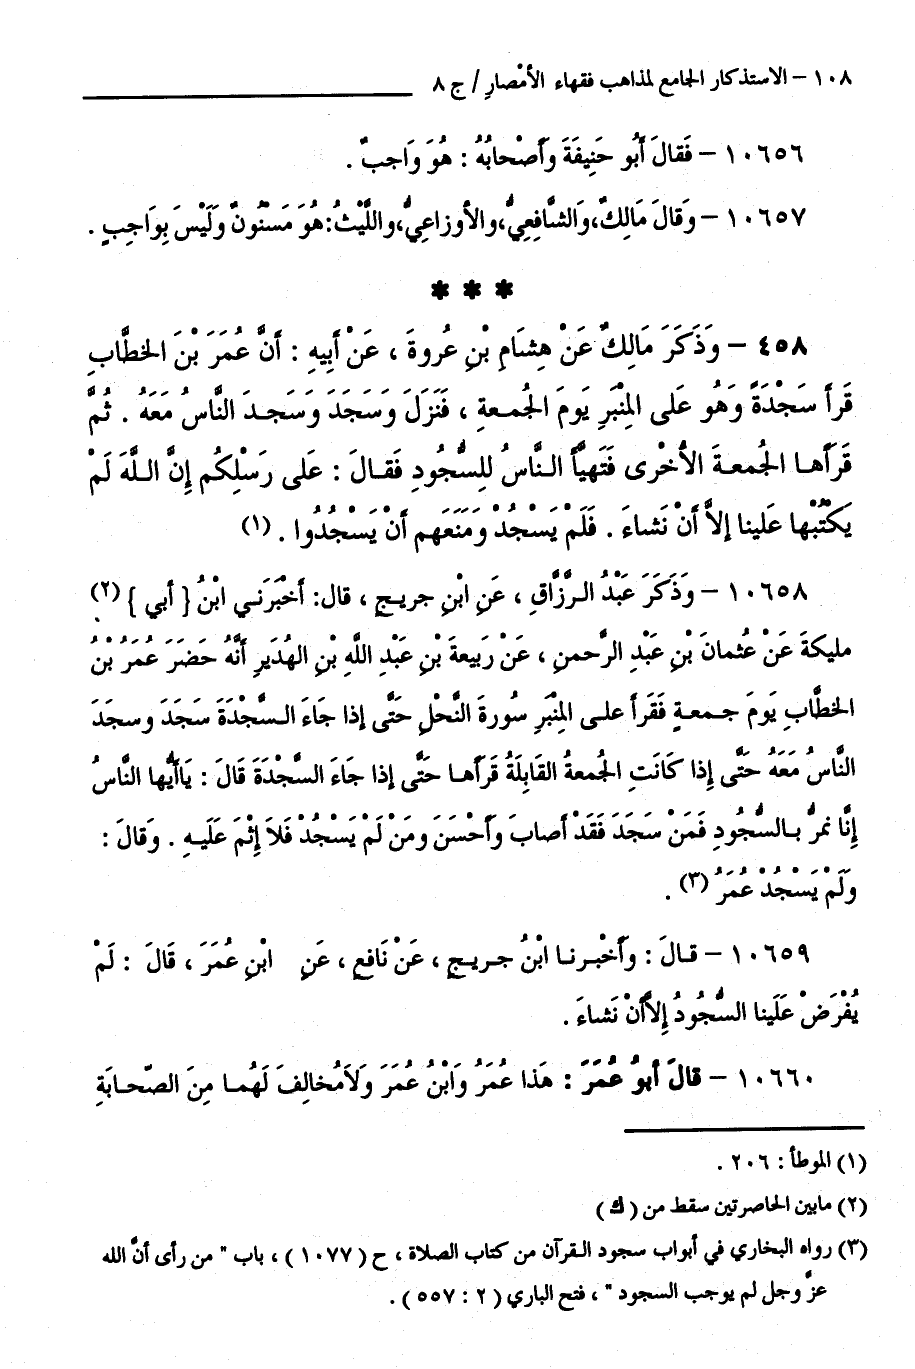 ١٠٨ – الاستذكار الجامع لمذاهب فقهاء الأمْصارِ / ج ٨
١٠٦٥٦ – فَقالَ أَبُو حَنِيفَةَ وأَصْحابُهُ : هُوَ وَاجبٌ .
١٠٦٥٧ – وَقالَ مَالِكٌ،وَالشَّافِعِيُّ،والأوزاعِيُّ،واللَّيْثُ:هُوَ مَسْنُونٌ وَلَيْسَ بِوَاجِبٍ .
✱ ✱ ✱
٤٥٨ – وَذَكَرَ مَالِكٌ عَنْ هِشَامِ بْنِ عُروةَ ، عَنْ أَبِيهِ : أَنَّ عُمَرَ بْنَ الخطَّابِ
قَرأ سَجْدَةً وَهُو عَلَى المِنْبَرِ يَومَ الجُمعةِ ، فَنَزَلَ وَسَجَدَ وَسَجدَ النَّاسُ مَعَهُ . ثُمَّ
قَرَأَهـا الجُمعـةَ الأخْرى فَتَهيَّأَ النَّاسُ لِلسُّجُودِ فَقـالَ : عَلَى رَسْلِكُم إِنَّ اللهَ لَمْ
يَكْتُبْها عَلينا إلاَّ أَنْ نَشاءَ . فَلَمْ يَسْجُدْ وَمَنَعَهم أَنْ يَسْجُدُوا . (١)
١٠٦٥٨ – وَذَكَرَ عَبْدُ الرَّزَّاقِ ، عَنِ ابْنِ جريجٍ ، قال: أَخْبَرَنـي ابْنُ { أبي } (٢)
مليكةَ عَنْ عُثمانَ بْنِ عَبْدِ الرَّحمنِ ، عَنْ رَبيعةَ بْنِ عَبْدِ اللَّهِ بْنِ الهُدَيرِ أَنَّهُ حَضَرَ عُمَرُ بْنُ
الخطَّابِ يَومَ جـمعـةٍ فَقَرأ علـى المِنْبَرِ سُورةَ النَّحْلِ حَتَّى إذا جَاءَ السَّجْدَةَ سَجَدَ وسجَدَ
النَّاسُ مَعَهُ حَتَّى إذا كَانَتِ الجُمعةُ القَابِلَةُ قَرَأَهـا حَتَّى إذا جَاءَ السَّجْدَةَ قَالَ : يَاأَيُّها النَّاسُ
إنَّا نمرُّ بـالسُّجُودِ فَمَنْ سَجَدَ فَقَدْ أصابَ وأَحْسَنَ ومَنْ لَمْ يَسْجُدْ فَلاَ إِثْمَ عَلَيـهِ . وَقالَ :
وَلَمْ يَسْجُدْ عُمَرُ (٣) .
١٠٦٥٩ – قـالَ : وأَخْبـرنـا ابْنُ جـريـجٍ ، عَنْ نَافعٍ ، عَنِ ابْنِ عُمَرَ ، قَالَ : لَمْ
يُفْرَضْ عَلَينا السُّجُودُ إلاَّأَنْ نَشاءَ .
١٠٦٦٠ – قالَ أَبُو عُمَرَ : هَذا عُمَرُ وَابْنُ عُمَرَ وَلاَمُخالِفَ لَهُمـا مِنَ الصّحـابَةِ
(١) الموطأ : ٢٠٦ .
(٢) مابين الحاصرتين سقط من ( ك )
(٣) رواه البخاري في أبواب سجود القرآن من كتاب الصلاة ، ح ( ١٠٧٧ ) ، باب " من رأى أنَّ الله
عزَّ وجل لم يوجب السجود " ، فتح الباري ( ٢ : ٥٥٧ ) .